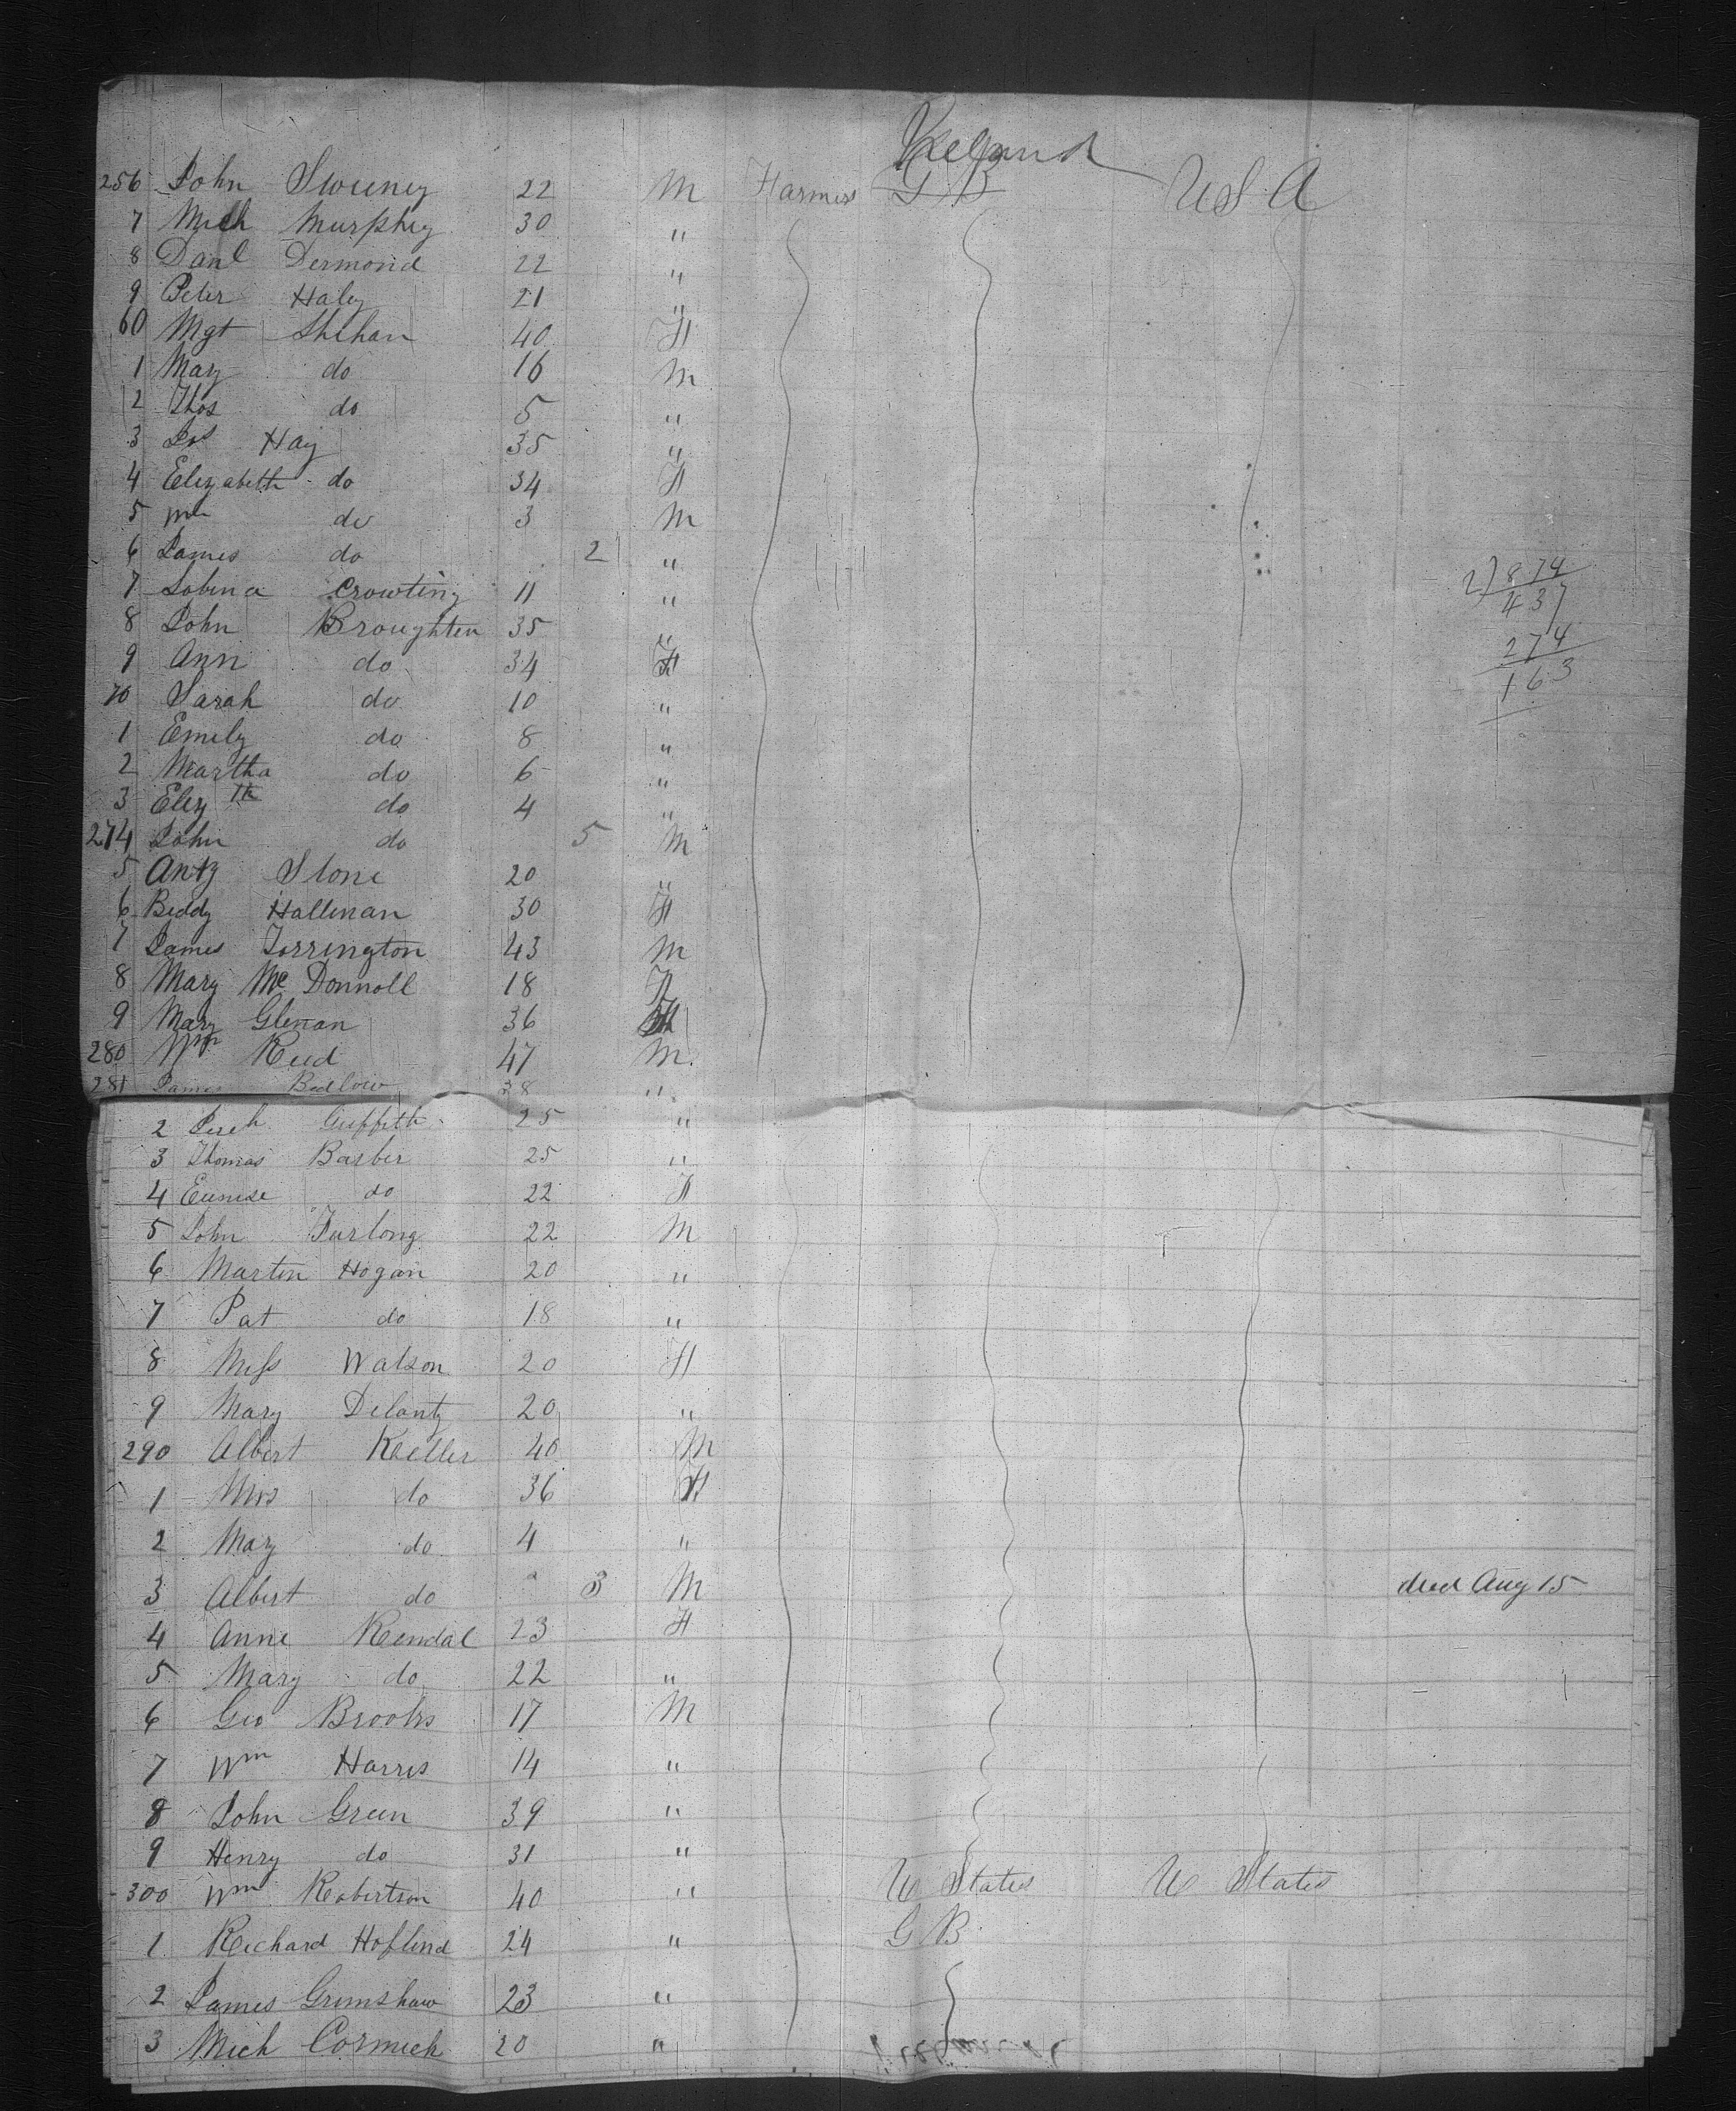 Ireland
256 John Sweeney 22 M Farmers G B USA
7 Mich Murphey 30 "
8 Danl Dermond 22 "
9 Peter Haley 21 "
60 Mgt Shehan 40 F
1 May do 16 M
2 Thos do 5 "
3 Jos Hay 35 "
4 Elizabeth do 34 F
5 Wm do 3 M
6 James do 2 "
7 Sobina Crowting 11 "
8 John Broughten 35 "
9 Ann do 34 F
70 Sarah do 10 "
1 Emily do 8 "
2 Martha do 6 "
3 Elizth do 4 "
274 John do 5 M
5 Anty Stone 20 "
6 Biddy Hallinan 30 F
7 James Torrington 43 M
8 Mary McDonnoll 18 F
9 Mary Glenan 36 F
280 Wm Reed 47 M
281 James Bedlow 38 "
2 Griffith 25 "
3 Thomas Barber 25 "
4 Eunise do 22 F
5 John Furlong 22 M
6 Martin Hogan 20 "
7 Pat do 18 "
8 Miss Watson 20 F
9 Mary Delanty 20 "
290 Albert Keller 40 M
1 Mrs do 36 F
2 May do 4 "
3 Albert do 3 M died Aug 15
4 Anne Kendal 23 F
5 Mary do 22 "
6 Geo Brooks 17 M
7 Wm Harris 14 "
8 John Green 39 "
9 Henry do 31 "
300 Wm Robertson 40 " U States U States
1 Richard Hoflind 24 " G B
2 James Grimshaw 23 "
3 Mich Cormick 20 "
2) 874
437
274
163